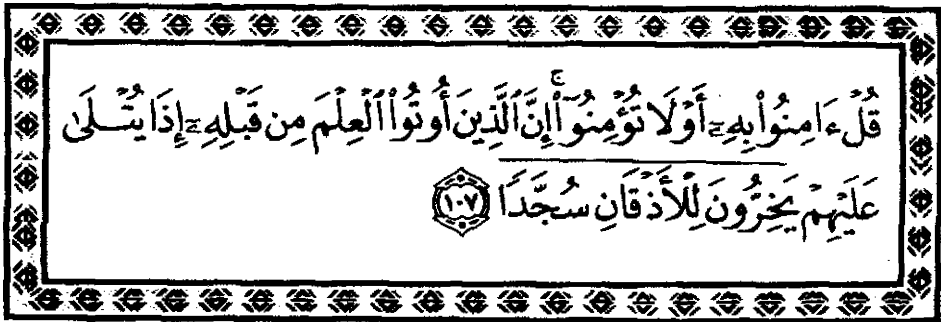 قُلْ ءَامِنُوا۟ بِهِۦٓ أَوْ لَا تُؤْمِنُوٓا۟ ۚ إِنَّ ٱلَّذِينَ أُوتُوا۟ ٱلْعِلْمَ مِن قَبْلِهِۦٓ إِذَا يُتْلَىٰ
عَلَيْهِمْ يَخِرُّونَ لِلْأَذْقَانِ سُجَّدًا ١٠٧